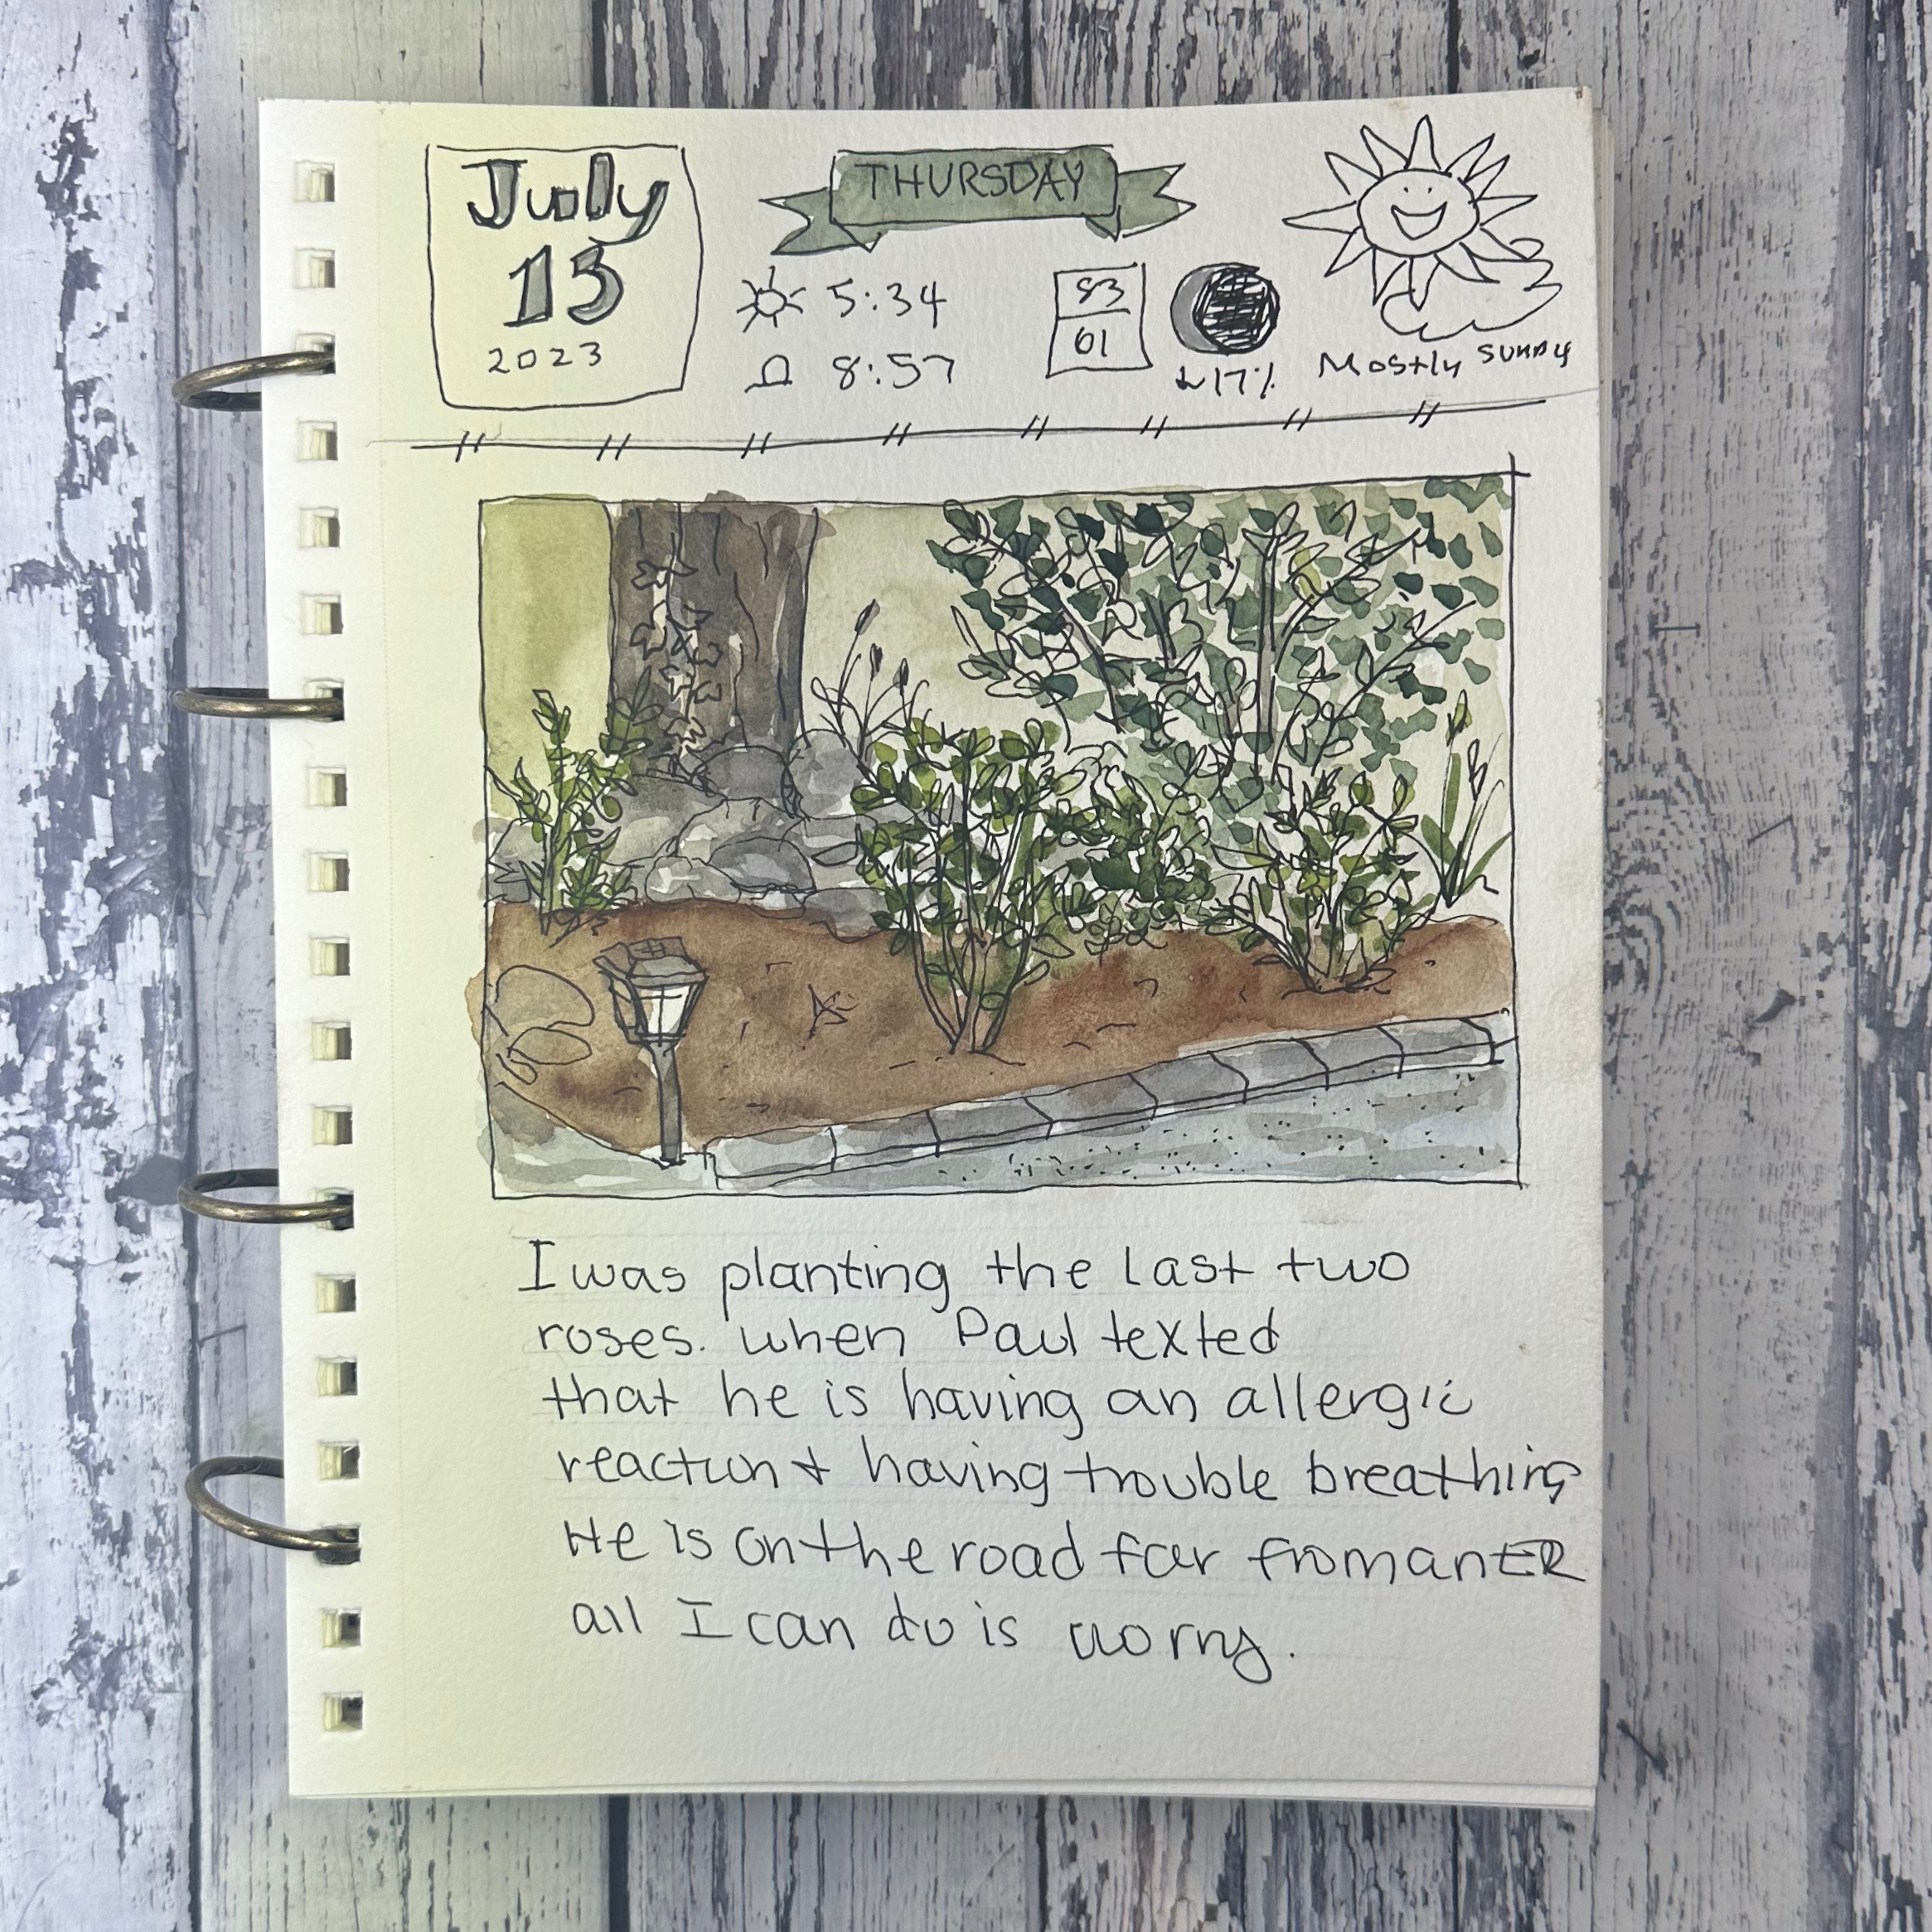 July
13
2023
THURSDAY
5:34
8:57
83
61
17%
Mostly sunny
I was planting the last two
roses. when Paul texted
that he is having an allergic
reaction + having trouble breathing
He is on the road far from an ER
all I can do is worry.